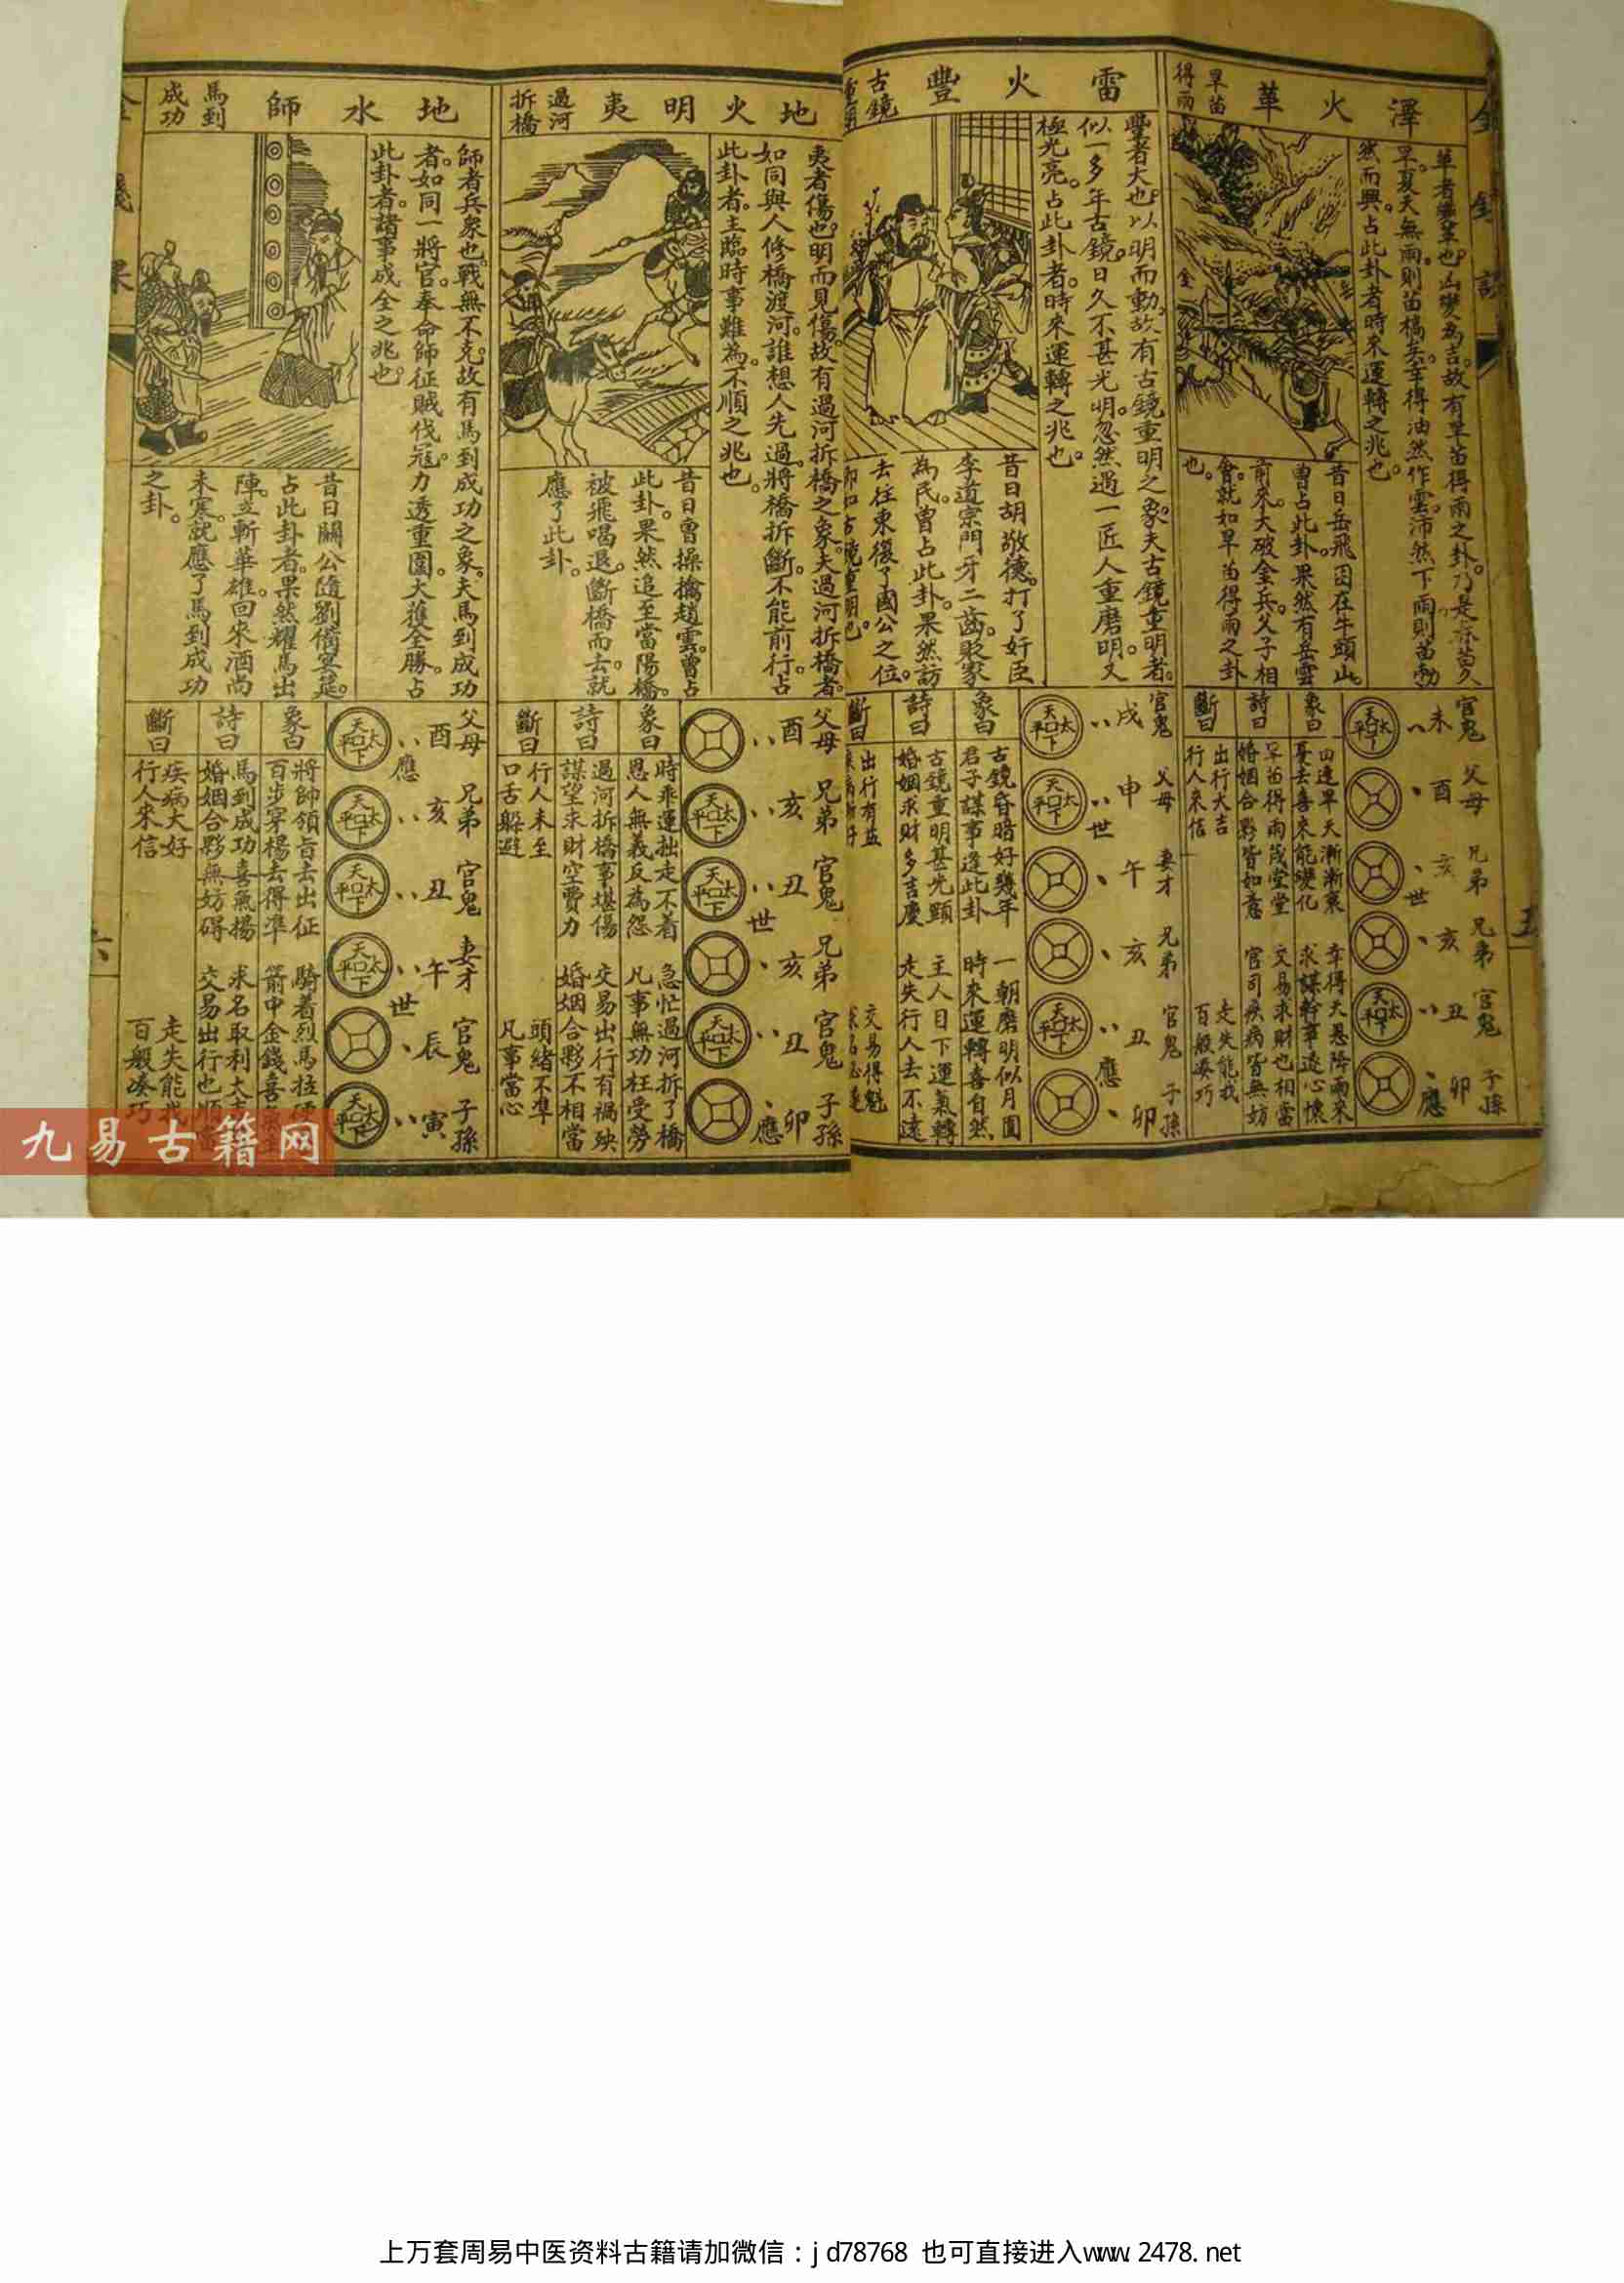 澤火革
旱苗
得雨
革者變革也凶變為吉。故有旱苗得雨之卦。乃是亦苗久
旱。夏天無雨。則苗槁矣。幸得油然作雲。沛然下雨。則苗勃
然而興。占此卦者時來運轉之兆也。
昔日岳飛困在牛頭山。
曾占此卦。果然有岳雲
前來。大破金兵。父子相
會。就如旱苗得雨之卦
也。
官鬼 未
父母 酉
兄弟 亥 世
兄弟 亥
官鬼 丑
子孫 卯 應
象曰
田逢旱天漸漸衰 幸得天恩降雨來
憂去喜來能變化 求謀幹事遂心懷
詩曰
旱苗得雨茂堂堂 交易求財也相當
婚姻合夥皆如意 官司疾病皆無妨
斷曰
出行大吉 走失能找
行人來信 百般湊巧
雷火豐
古鏡
重明
豐者大也。以明而動。故有古鏡重明之象。夫古鏡重明者。
似一多年古鏡。日久不甚光明。忽然遇一匠人重磨明。又
極光亮。占此卦者。時來運轉之兆也。
昔日胡敬德。打了奸臣
李道宗門牙二齒。貶家
為民。曾占此卦。果然訪
去征東復了國公之位。
即如古鏡重明也。
官鬼 戌
父母 申 世
妻才 午
兄弟 亥
官鬼 丑 應
子孫 卯
象曰
古鏡昏暗好幾年 一朝磨明似月圓
君子謀事逢此卦 時來運轉喜自然
詩曰
古鏡重明甚光顯 主人目下運氣轉
婚姻求財多吉慶 走失行人去不遠
斷曰
出行有益 交易得魁
地火明夷
過河
拆橋
夷者傷也。明而見傷。故有過河拆橋之象。夫過河拆橋者。
如同與人修橋渡河。誰想人先過。將橋拆斷。不能前行。占
此卦者。主臨時事難為。不順之兆也。
昔日曹操擒趙雲。曾占
此卦。果然追至當陽橋。
被飛喝退。斷橋而去。就
應了此卦。
父母 酉
兄弟 亥
官鬼 丑 世
兄弟 亥
官鬼 丑
子孫 卯 應
象曰
時乖運拙走不着 急忙過河拆了橋
恩人無義反為怨 凡事無功枉受勞
詩曰
過河拆橋事堪傷 交易出行有禍殃
謀望求財空費力 婚姻合夥不相當
斷曰
行人未至 頭緒不準
口舌躲避 凡事當心
地水師
馬到
成功
師者兵衆也。戰無不克。故有馬到成功之象。夫馬到成功
者。如同一將官。奉命師征賊伐寇。力透重圍。大獲全勝。占
此卦者。諸事成全之兆也。
昔日關公隨劉備宴筵。
占此卦者。果然耀馬出
陣。立斬華雄。回來酒尚
未寒。就應了馬到成功
之卦。
父母 酉 應
兄弟 亥
官鬼 丑
妻才 午 世
官鬼 辰
子孫 寅
象曰
將帥領旨去出征 騎着烈馬拉硬
百步穿楊去得準 箭中金錢喜
詩曰
馬到成功喜氣揚 求名取利大吉
婚姻合夥無妨碍 交易出行也順當
斷曰
疾病大好 走失能找
行人來信 百般湊巧
五
六
九易古籍网
上万套周易中医资料古籍请加微信：jd78768 也可直接进入www.2478.net